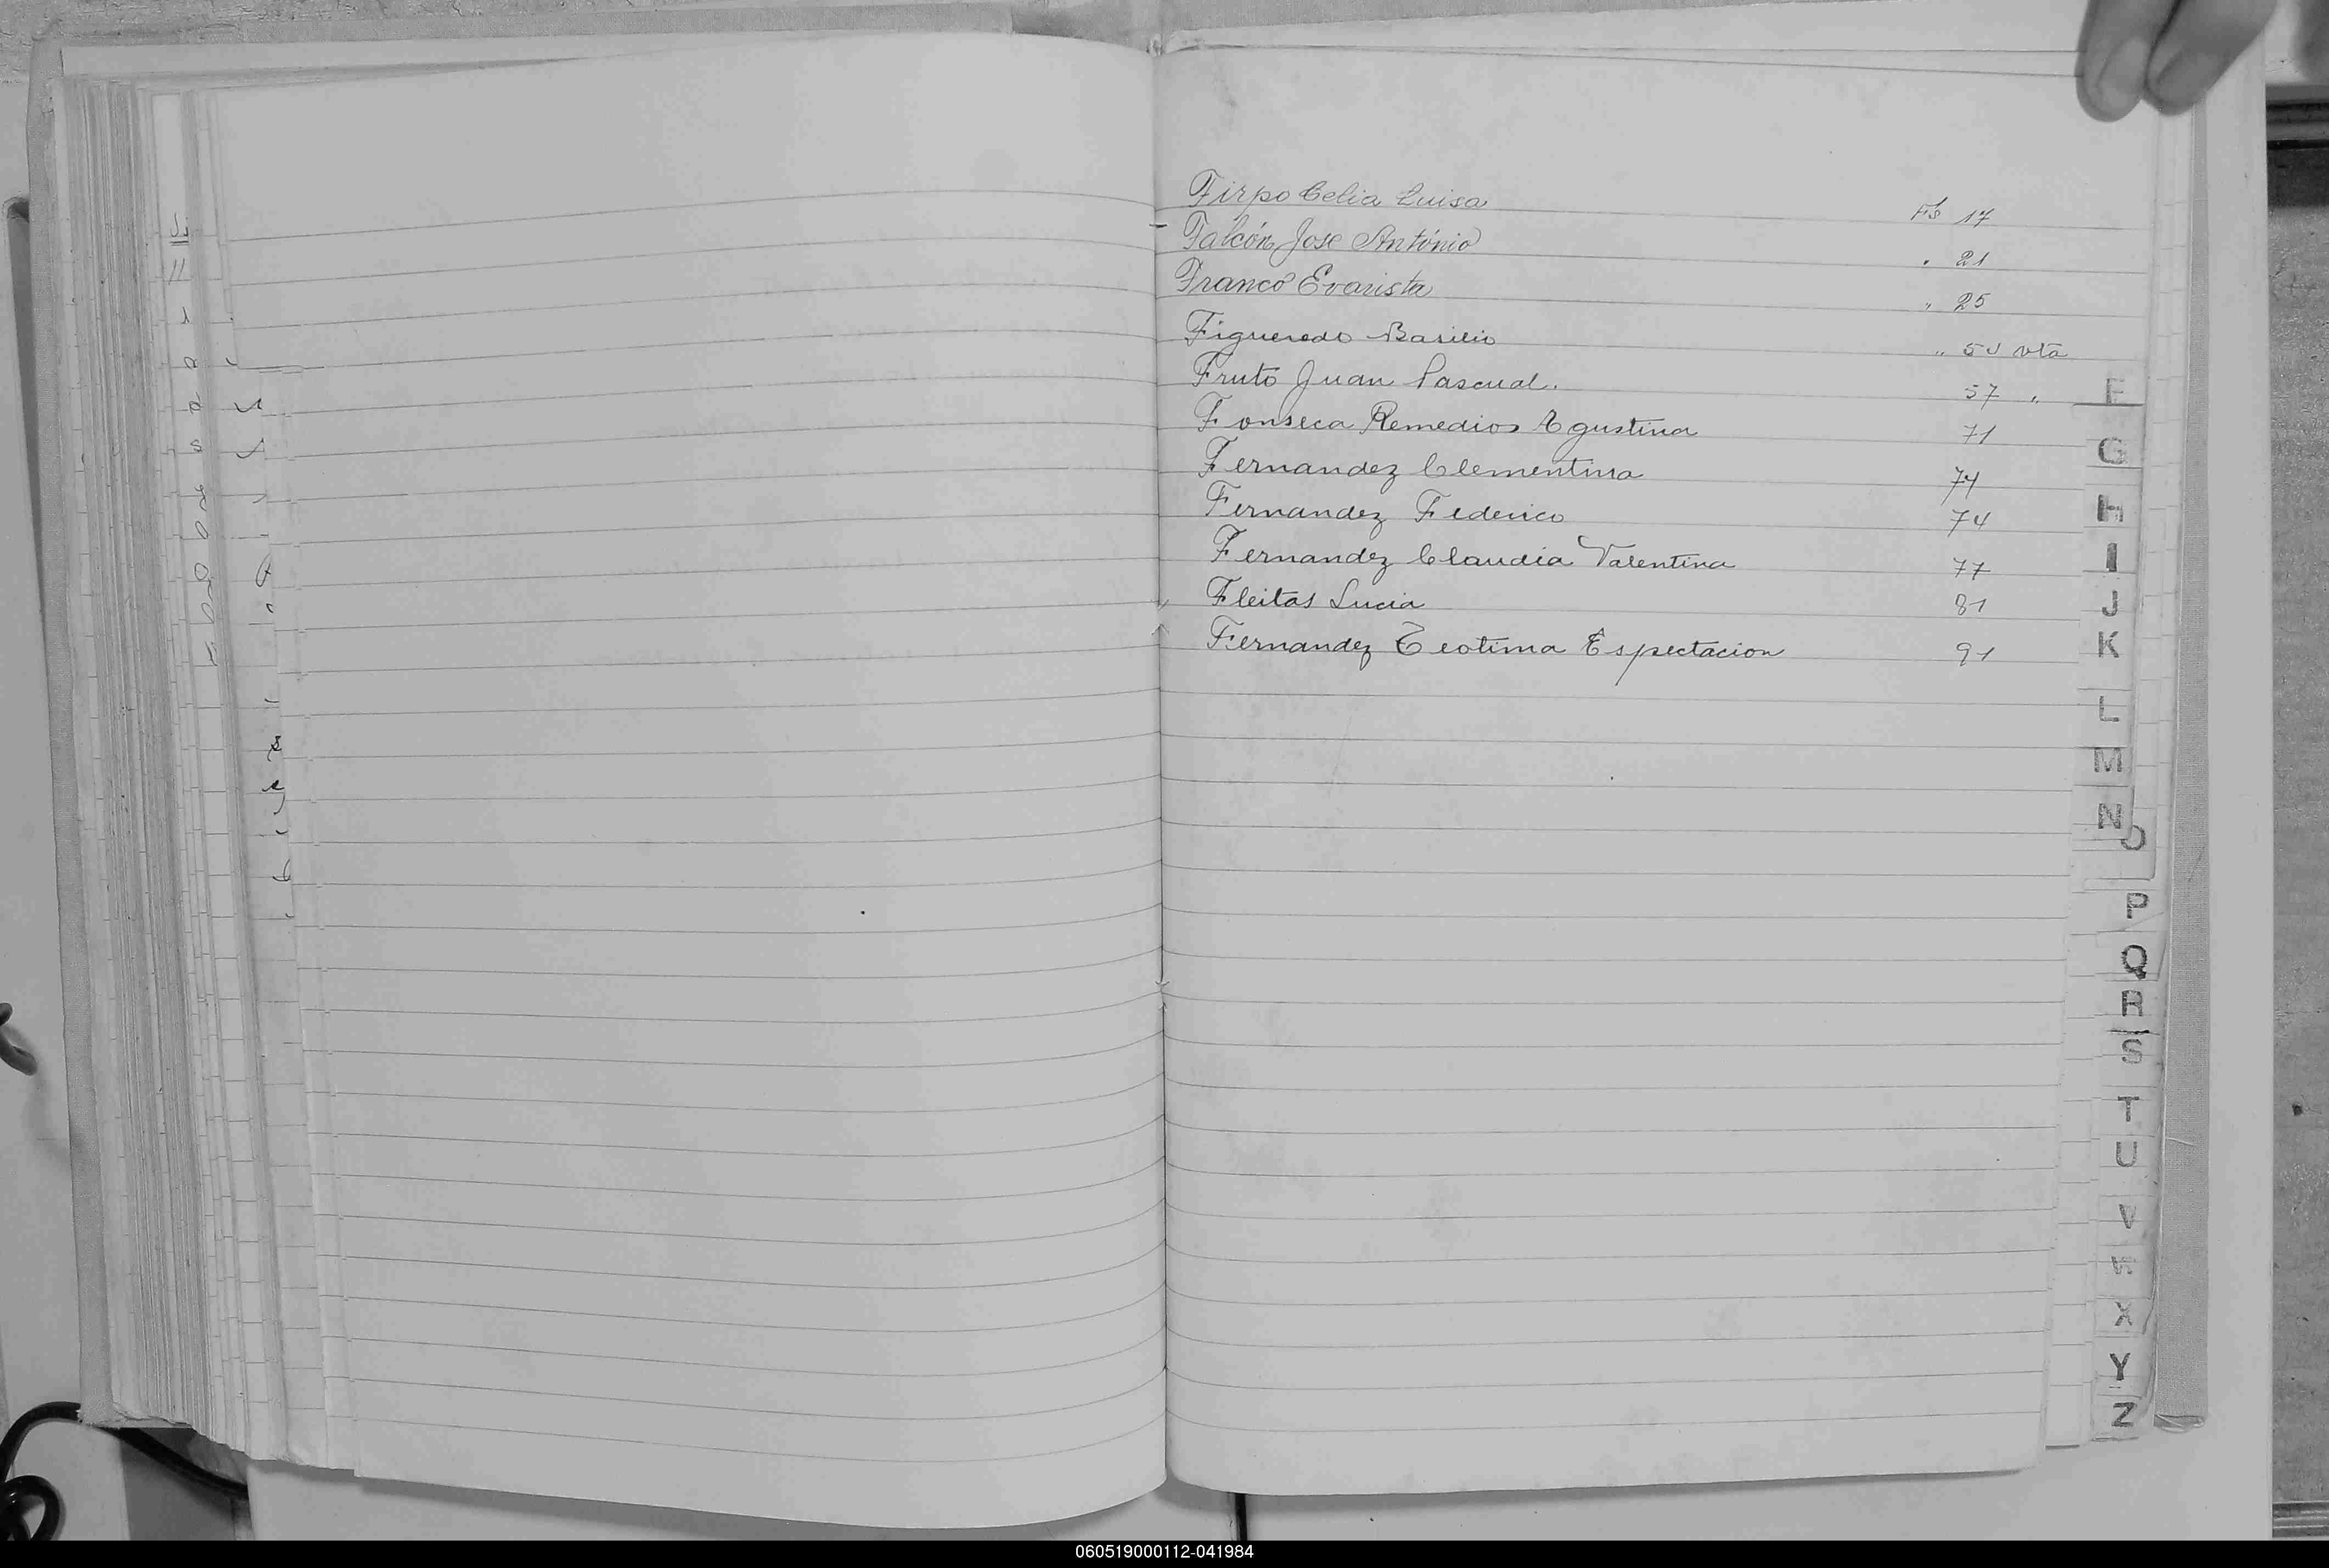 Firpo Celia Luisa Fs 17
Falcón Jose António " 21
Franco Evarista " 25
Figueredo Basilio " vta
Fruto Juan Pascual. 57 "
Fonseca Remedios Agustina 71
Fernandez Clementina 74
Fernandez Federico 74
Fernandez Claudia Valentina 77
Fleitas Lucia 81
Fernandez Teotima Espectacion 91
F
G
H
I
J
K
L
M
N
O
P
Q
R
S
T
U
V
W
X
Y
Z
060519000112-041984